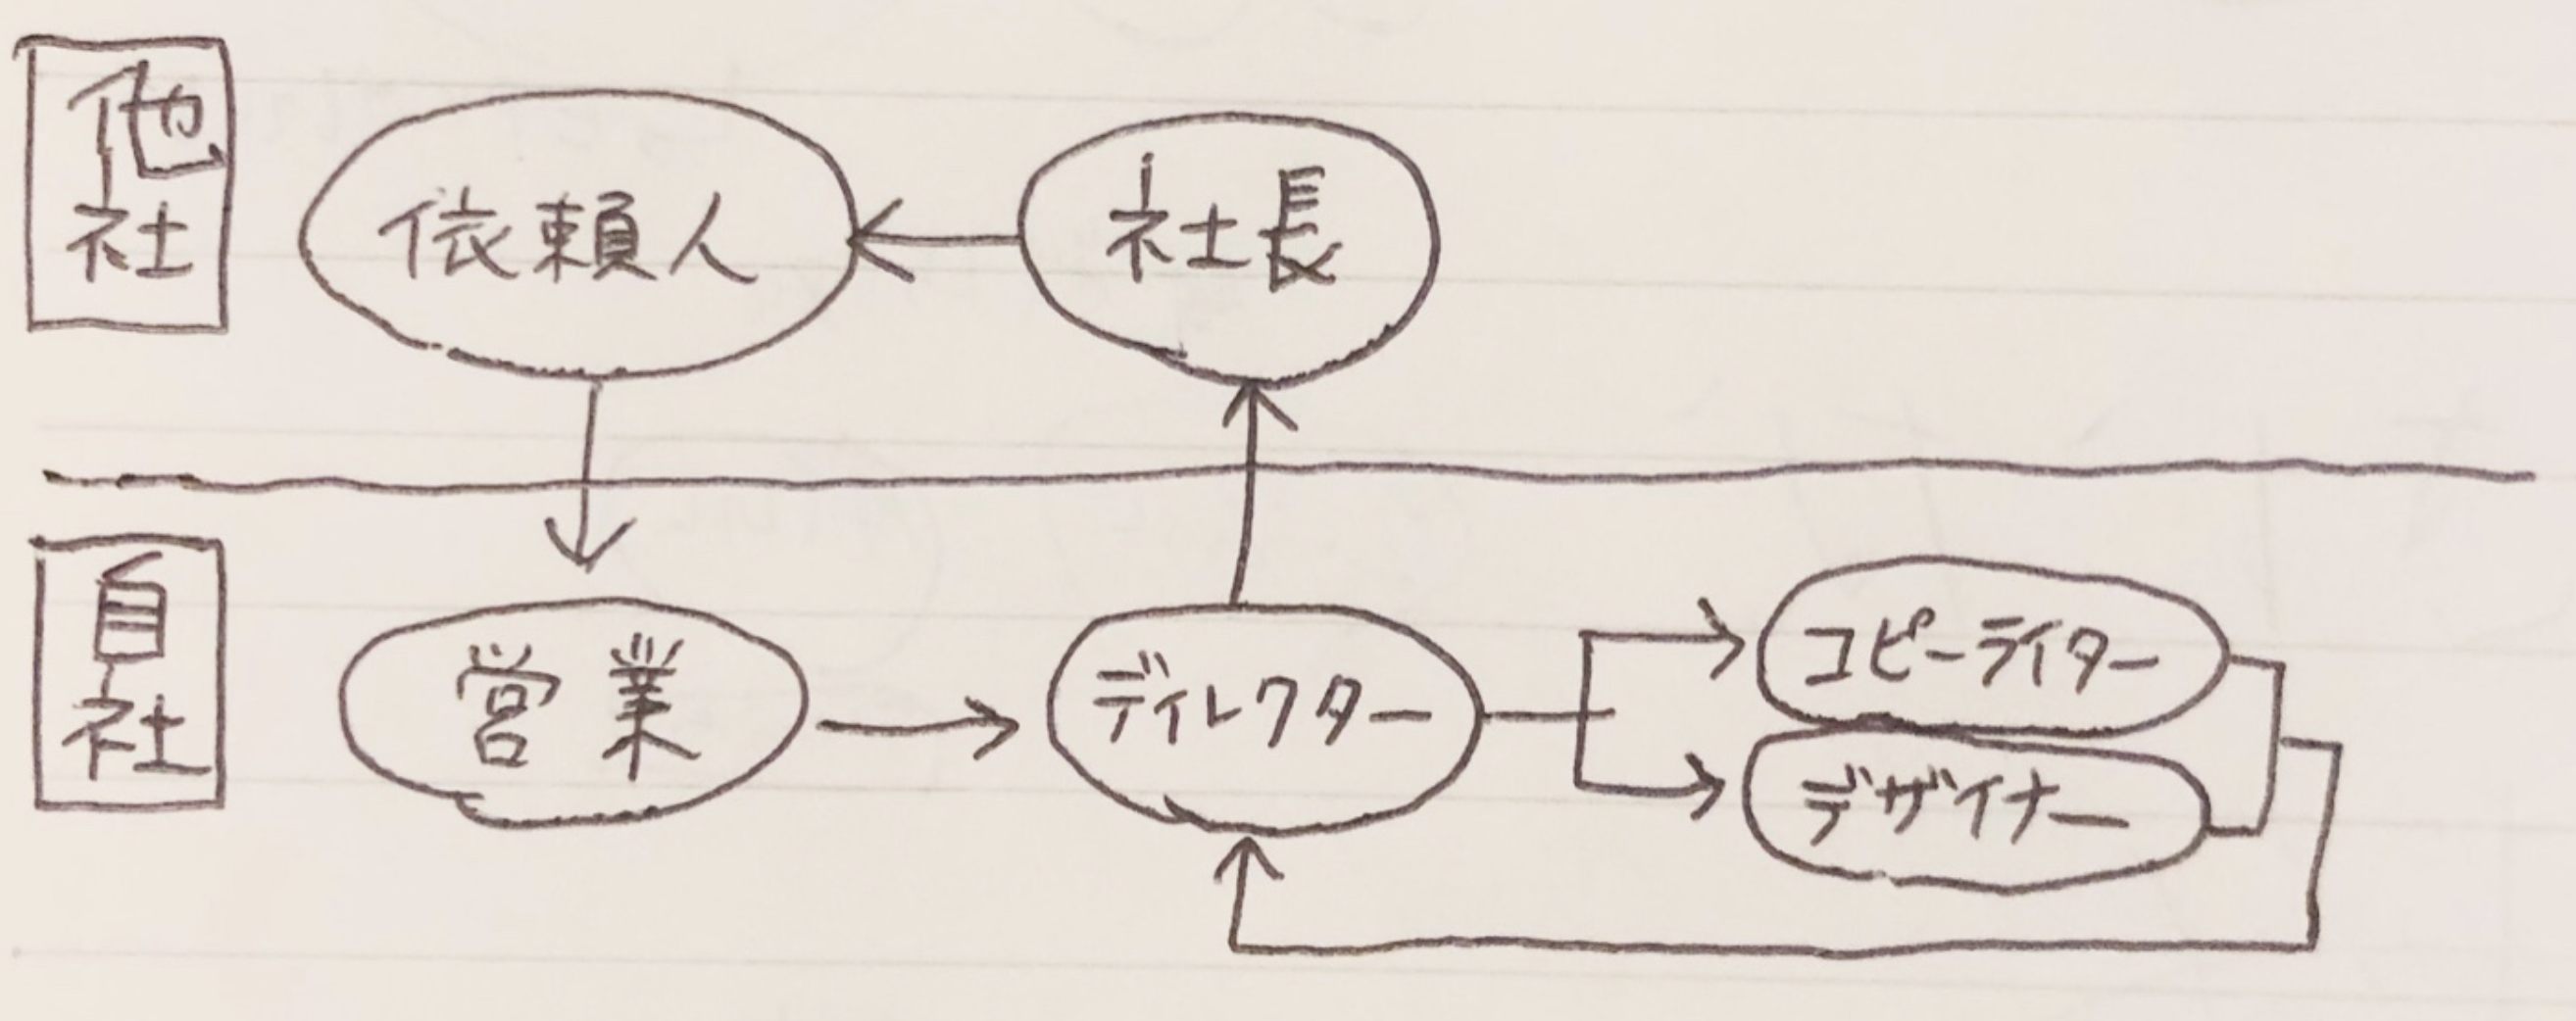 他社
依頼人
社長
自社
営業
ディレクター
コピーライター
デザイナー